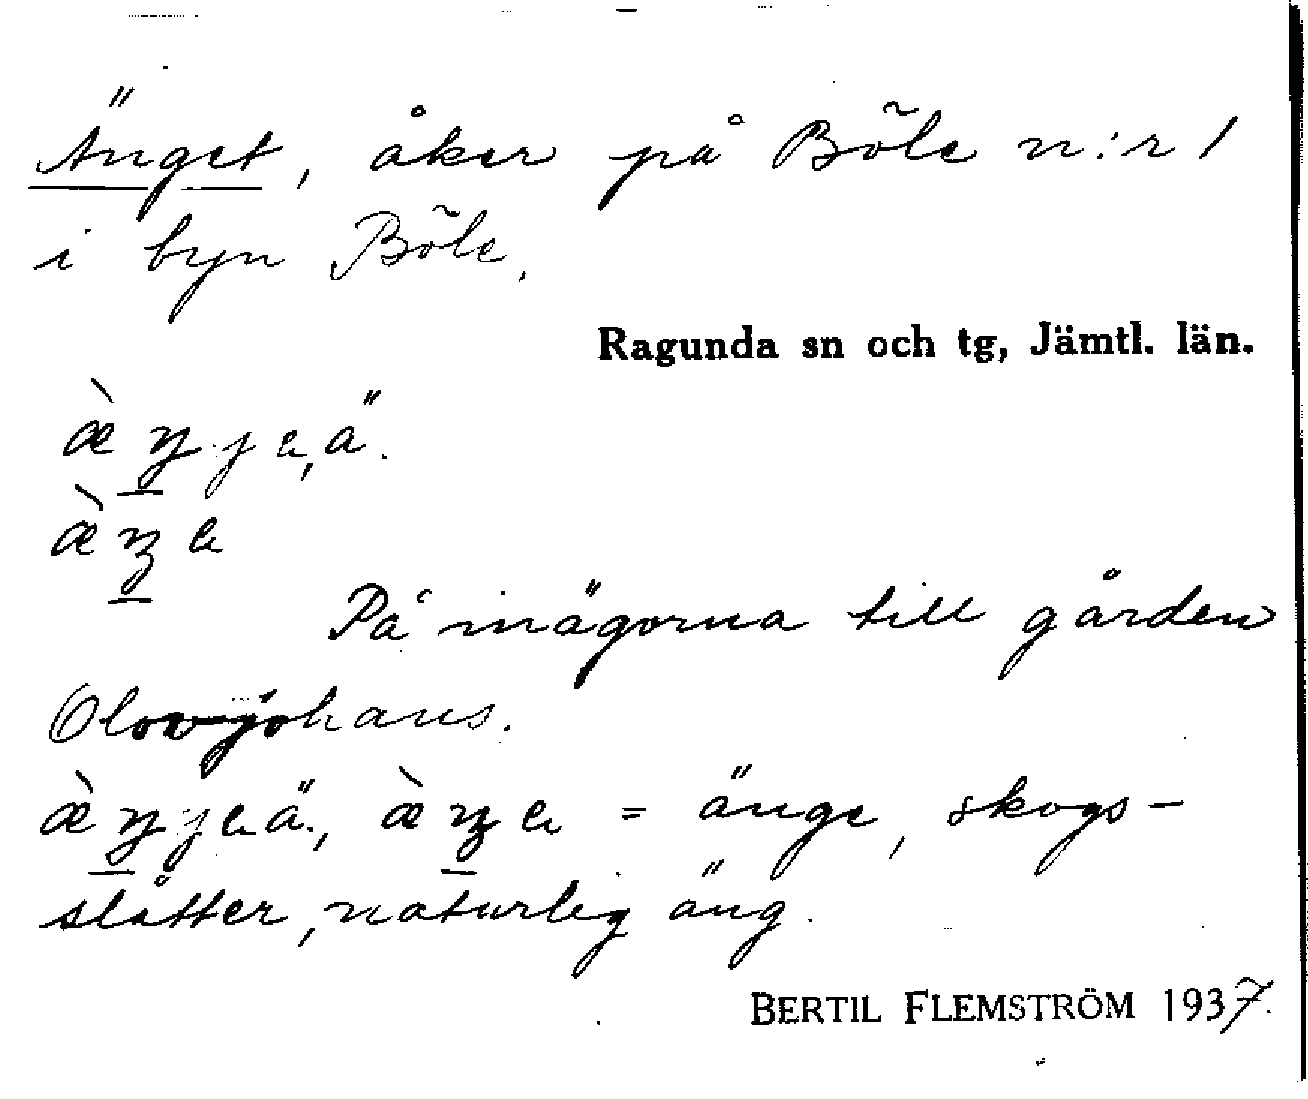 Änget, åker på Böle n:r 1
i byn Böle.
Ragunda sn och tg, Jämtl. län.
På inägorna till gården
Olow-johans.
= änge, skogs-
slåtter, naturlig äng.
BERTIL FLEMSTRÖM 1937.